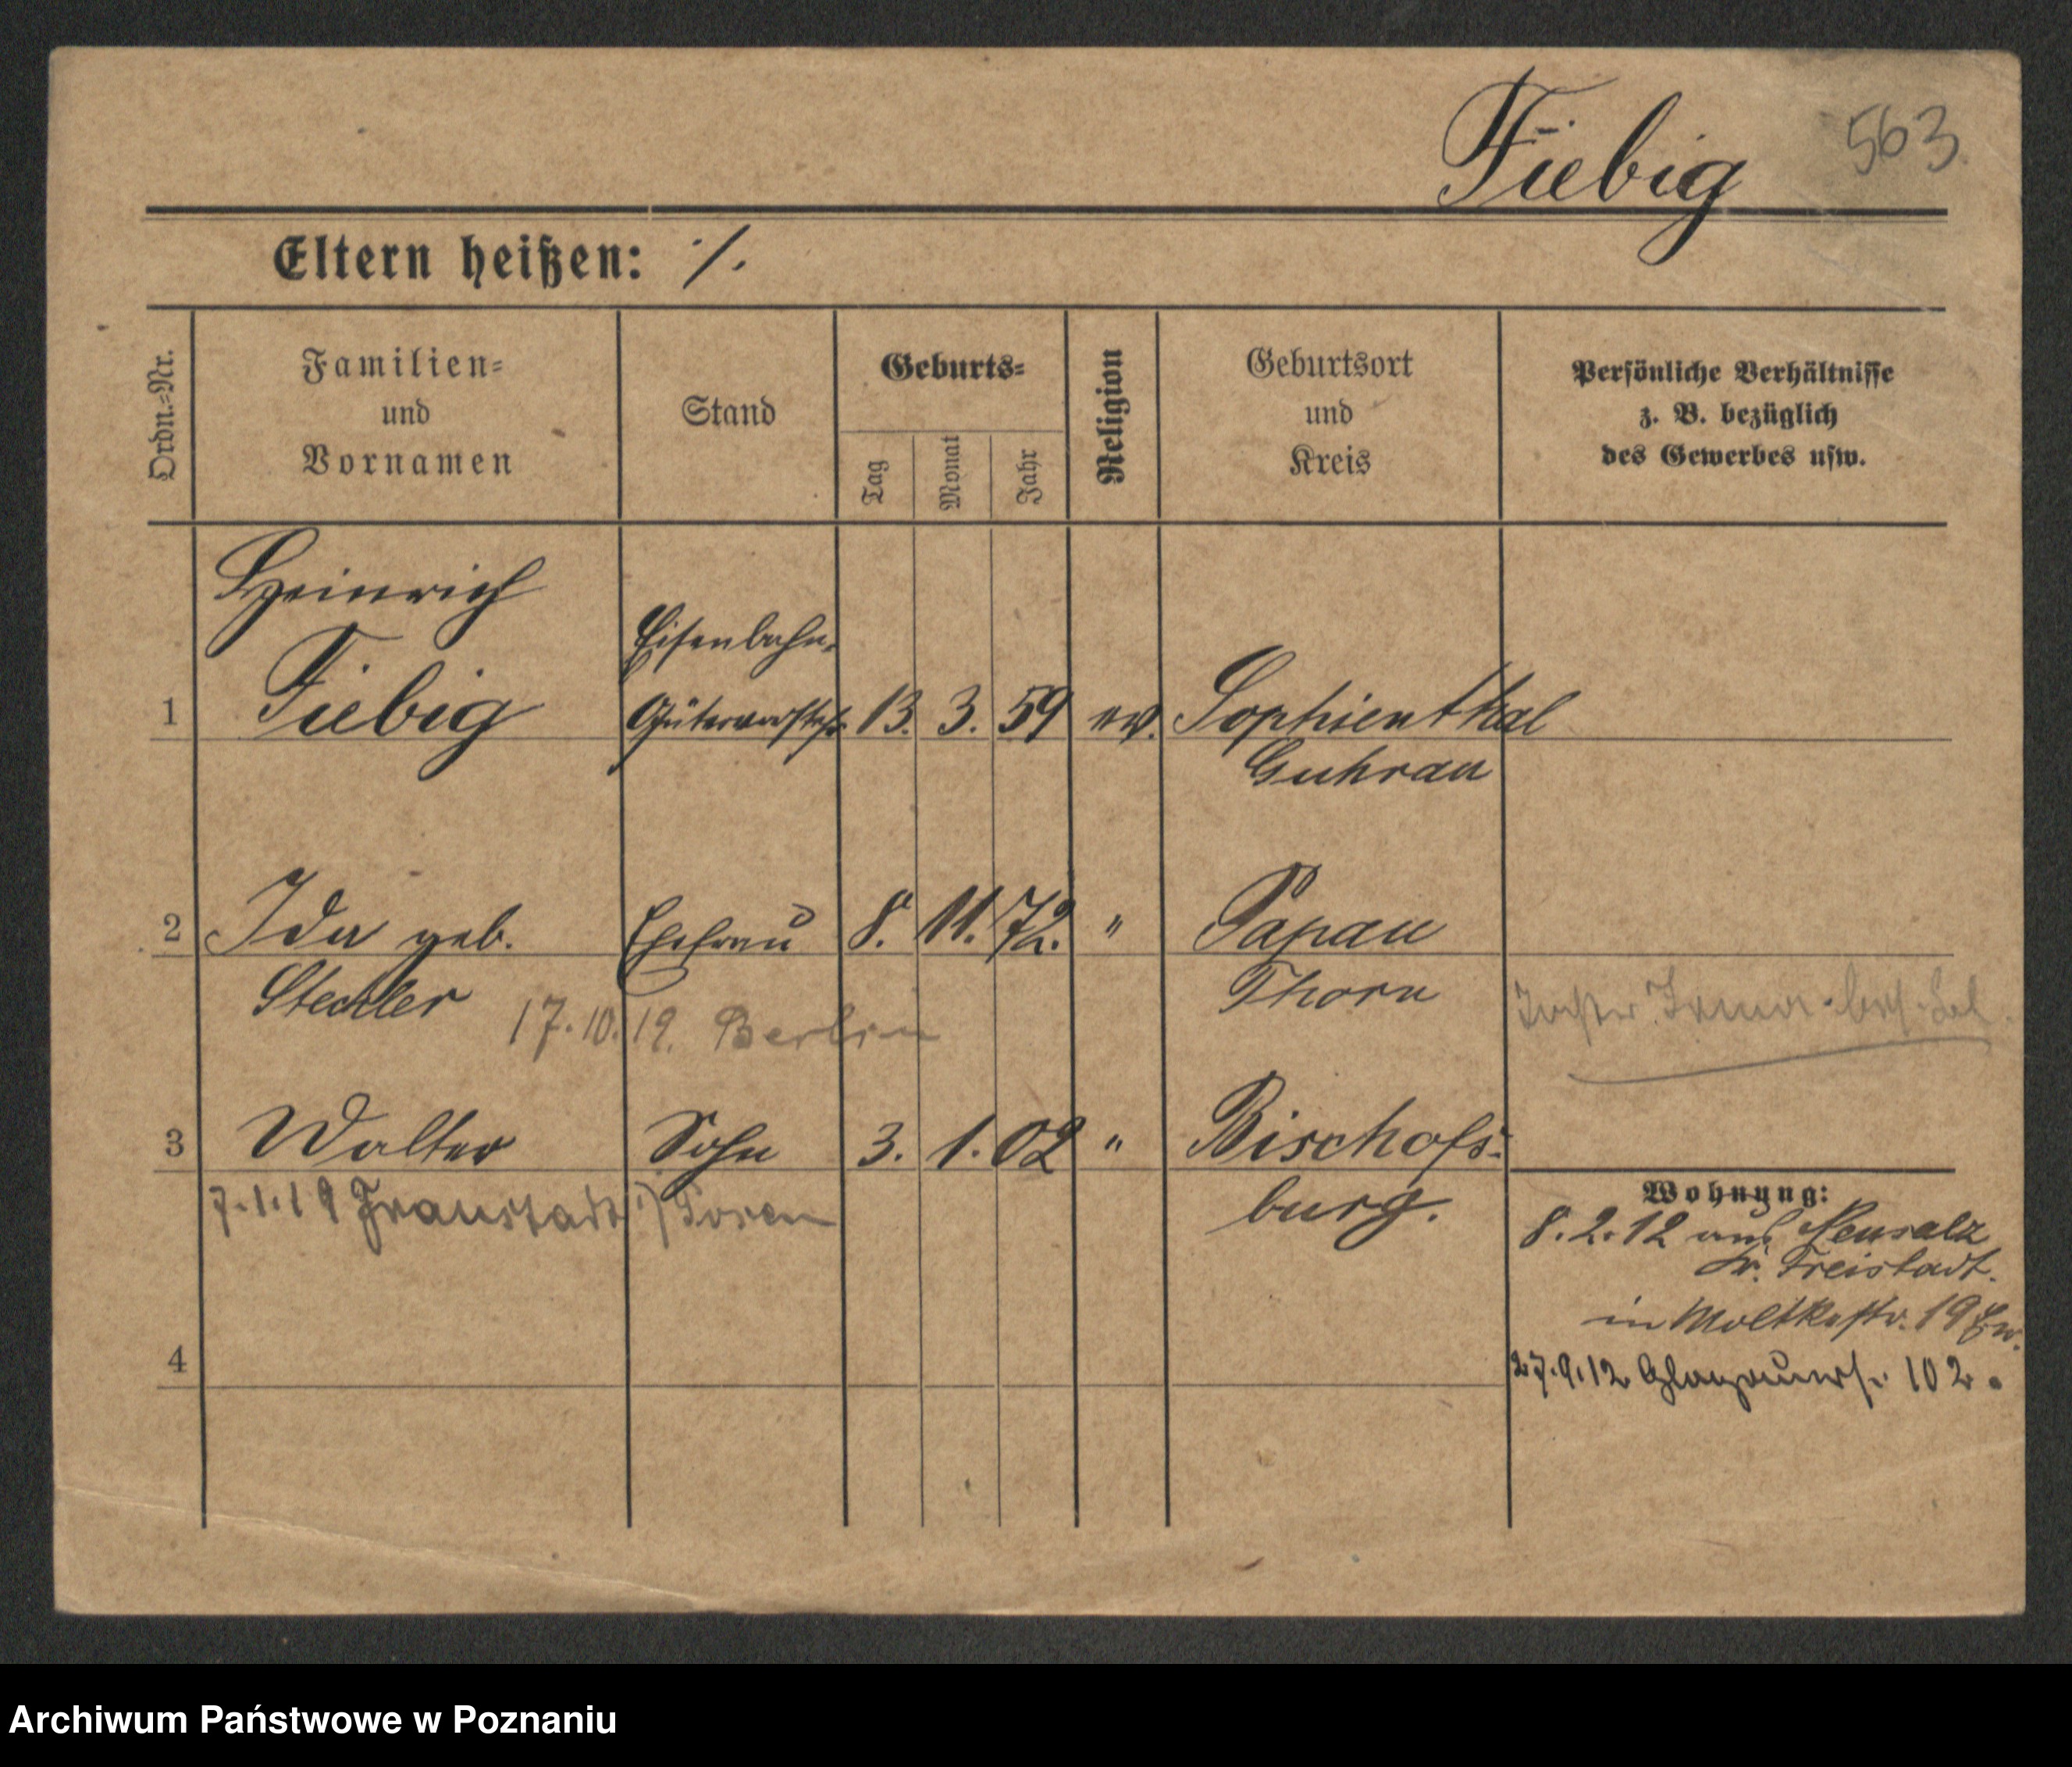 Fiebig 563
Eltern heißen: ./.
Ordn.-Nr.
Familien-
und
Vornamen
Stand
Geburts-
Tag
Monat
Jahr
Religion
Geburtsort
und
Kreis
Persönliche Verhältnisse
z. B. bezüglich
des Gewerbes usw.
Heinrich
Eisenbahn-
1 Fiebig Gütervorsteher 13. 3. 59 ev. Sophienthal
Guhrau
2 Ida geb. Ehefrau 8. 11. 72. " Papau
Stechler Thorn
17.10.19. Berlin
3 Walter Sohn 3. 1. 02 " Bischofs-
burg.
7.1.19 Fraustadt Posen
Wohnung:
8.2.12 aus Neusalz
Kr. Freistadt.
in Moltkestr. 19
4
27.9.12 Glogauerstr. 102.
Archiwum Państwowe w Poznaniu